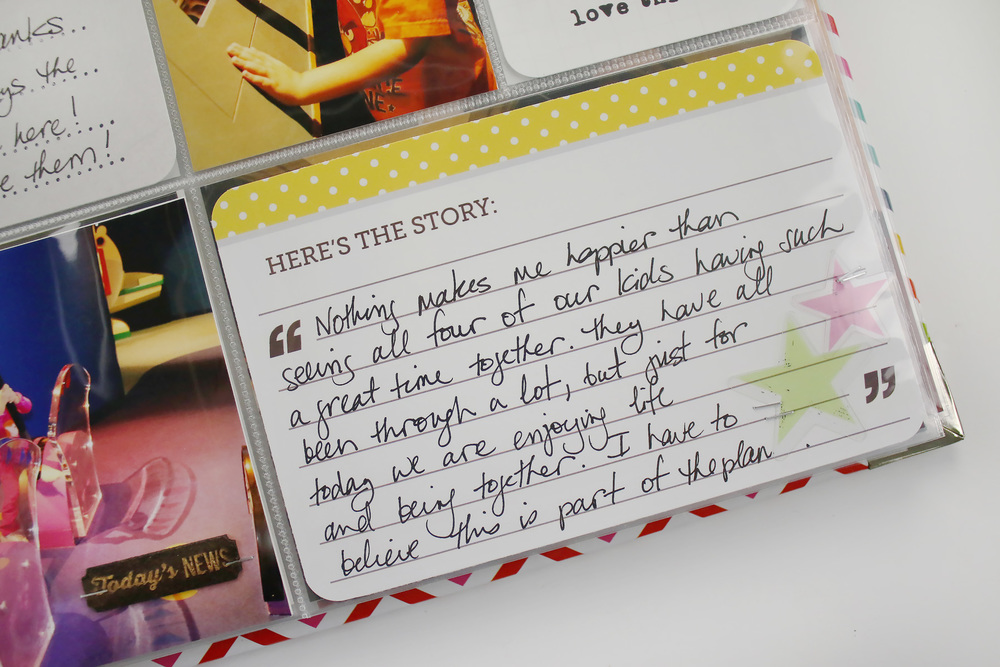 anks...
ys the...
here!
e them!
love
HERE'S THE STORY:
“ Nothing makes me happier than
seeing all four of our kids having such
a great time together. They have all
been through a lot, but just for
today we are enjoying life
and being together. I have to
believe this is part of the plan. ”
Today's NEWS